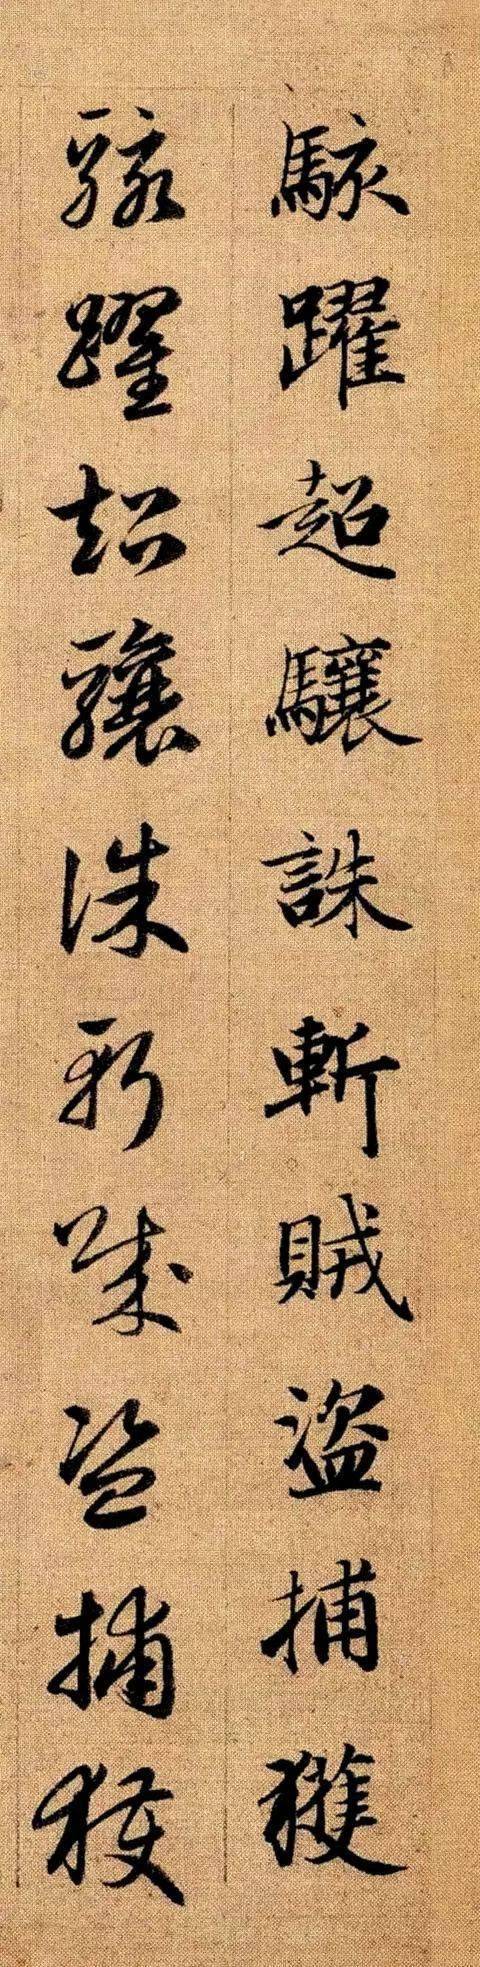 駭躍超驤誅斬賊盜捕獲
駭躍超驤誅斬賊盜捕獲